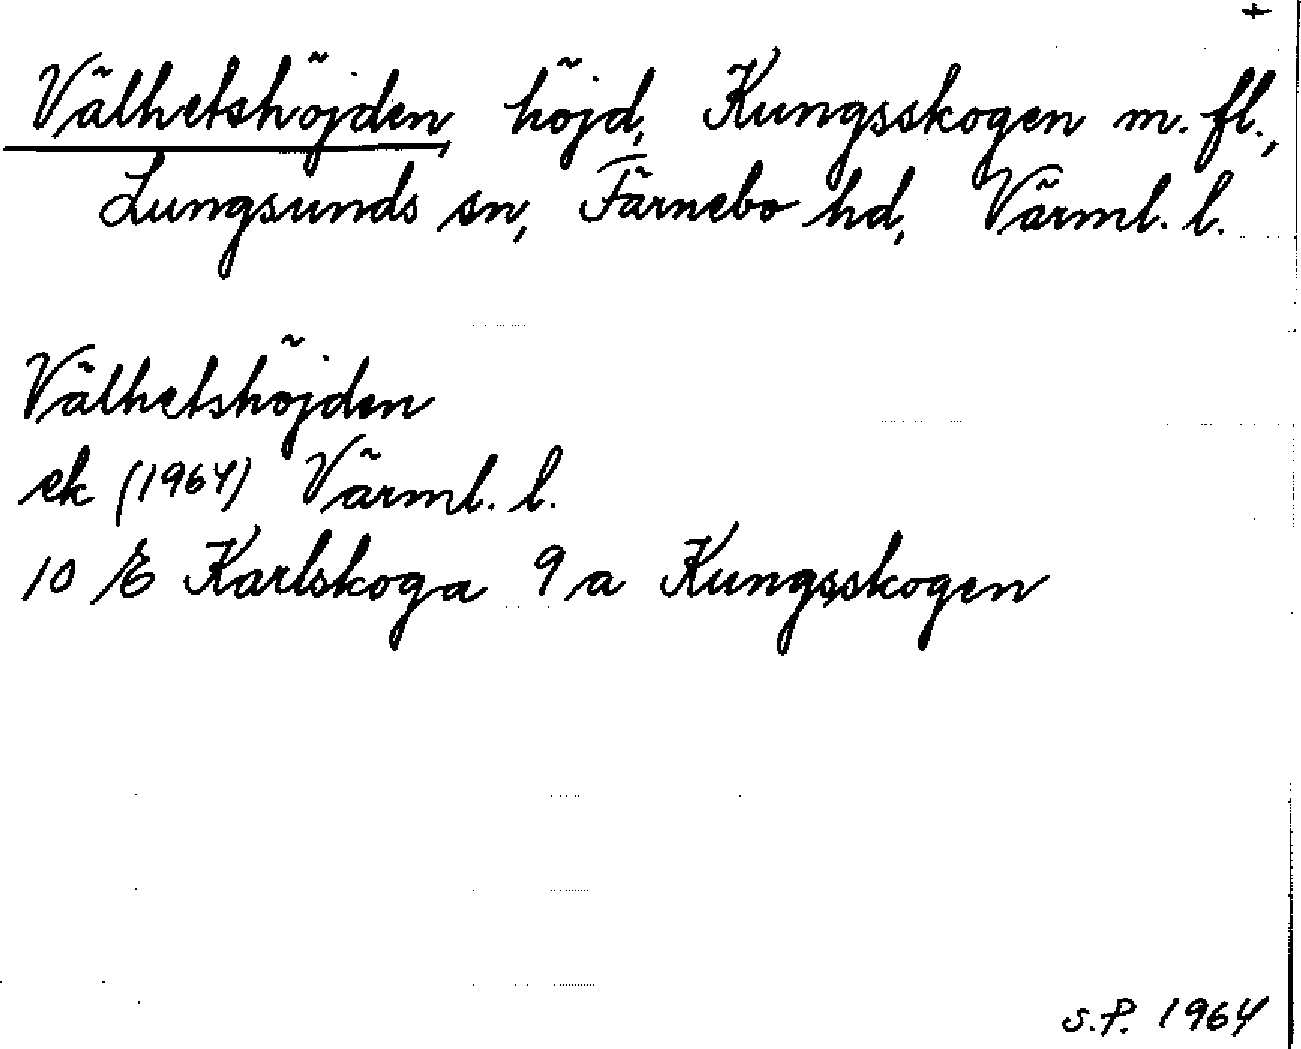 t
Välhetshöjden, höjd, Kungsskogen m. fl.,
Lungsunds sn, Färnebo hd, Värml. l.
Välhetshöjden
ek (1964) Värml. l.
10 E Karlskoga 9 a Kungsskogen
S.P. 1964